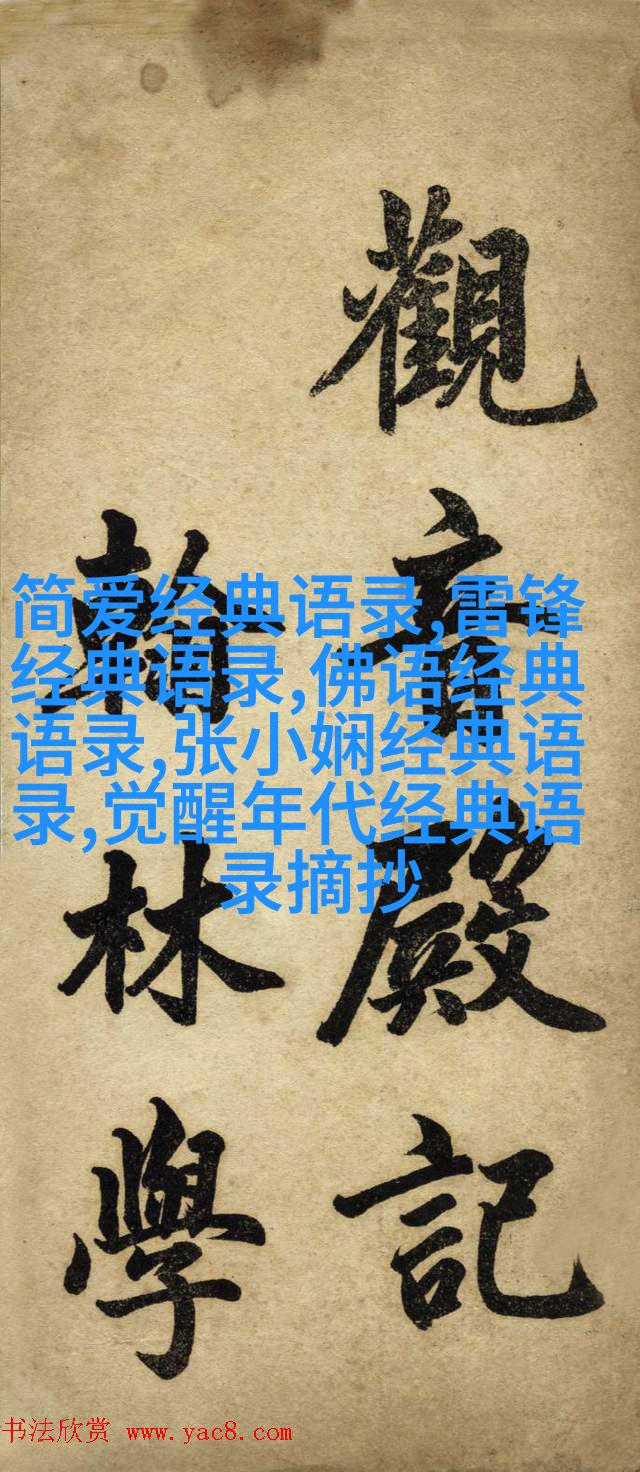 觀音殿記
翰林學
简爱经典语录,雷锋
经典语录,佛语经典
语录,张小娴经典语
录,觉醒年代经典语
录摘抄
书法欣赏 www.yac8.com